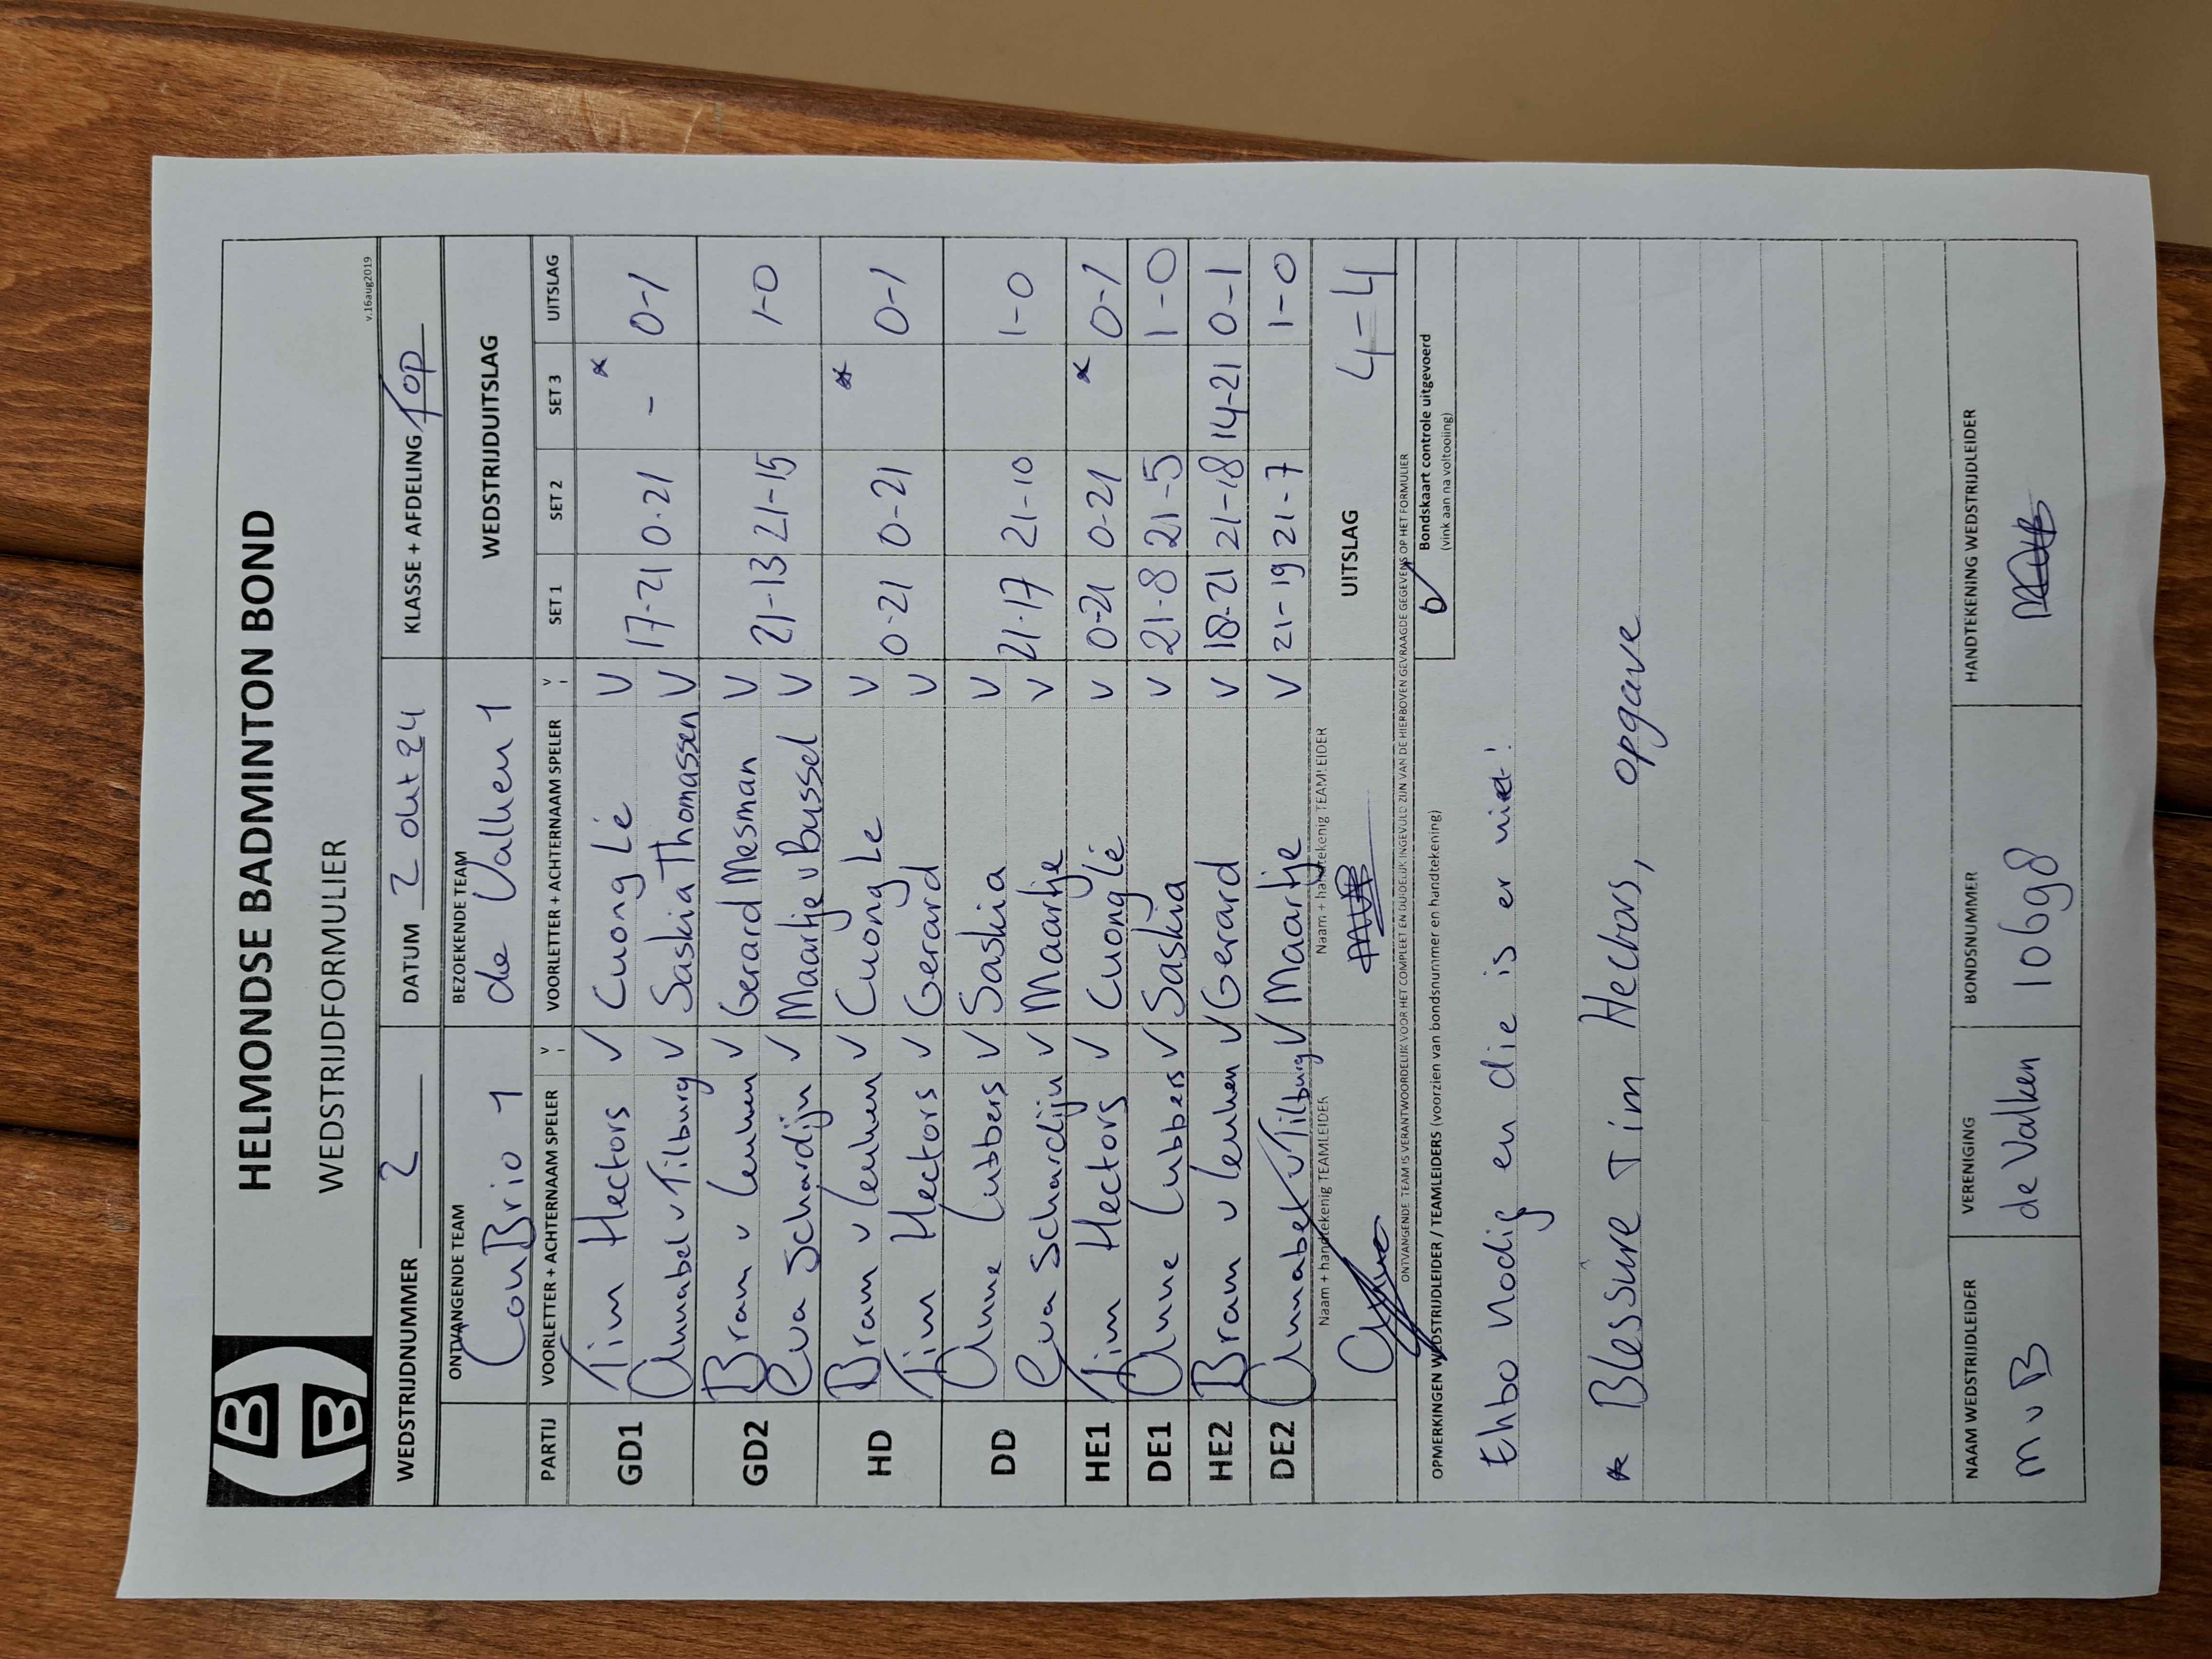 HELMONDSE BADMINTON BOND
WEDSTRIJDFORMULIER
v.16aug2019
WEDSTRIJDNUMMER 2 DATUM 2 okt 24 KLASSE + AFDELING Top
ONTVANGENDE TEAM BEZOEKENDE TEAM WEDSTRIJDUITSLAG
ConBrio 1 de Valken 1
PARTIJ VOORLETTER + ACHTERNAAM SPELER V VOORLETTER + ACHTERNAAM SPELER V SET 1 SET 2 SET 3 UITSLAG
GD1 Tim Hectors V Cuong Lé V *
Annabel v Tilburg V Saskia Thomassen V 17-21 0-21 - 0-1
GD2 Bram v Leuken V Gerard Mesman V
Eva Schardijn V Maartje v Bussel V 21-13 21-15 1-0
HD Bram v Leuken V Cuong Le V *
Tim Hectors V Gerard V 0-21 0-21 0-1
DD Anne Lubbers V Saskia V
Eva Schardijn V Maartje V 21-17 21-10 1-0
HE1 Tim Hectors V Cuong Lé V 0-21 0-21 * 0-1
DE1 Anne Lubbers V Saskia V 21-8 21-5 1-0
HE2 Bram v Leuken V Gerard V 18-21 21-18 14-21 0-1
DE2 Annabel v Tilburg V Maartje V 21-19 21-7 1-0
Naam + handtekenig TEAMLEIDER Naam + handtekenig TEAMLEIDER UITSLAG 4-4
ONTVANGENDE TEAM IS VERANTWOORDELIJK VOOR HET COMPLEET EN DUIDELIJK INGEVULD ZIJN VAN DE HIERBOVEN GEVRAAGDE GEGEVENS OP HET FORMULIER
OPMERKINGEN WEDSTRIJDLEIDER / TEAMLEIDERS (voorzien van bondsnummer en handtekening) Bondskaart controle uitgevoerd
(vink aan na voltooiing)
Ehbo nodig en die is er niet!
* Blessure Tim Hectors, opgave
NAAM WEDSTRIJDLEIDER VERENIGING BONDSNUMMER HANDTEKENING WEDSTRIJDLEIDER
M v B de Valken 10698